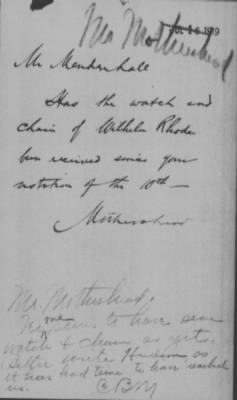 JUL 16 1919
Mr Mothershead
Mr Mendenhall
Has the watch and
chain of Wilhelm Rhode
been received since your
notation of the 10th —
Mothershead
Mr. Mothershead,
No one seems to have seen
watch & chain as yet.
Better write Hudson as
it has had time to have reached
us.
CBM